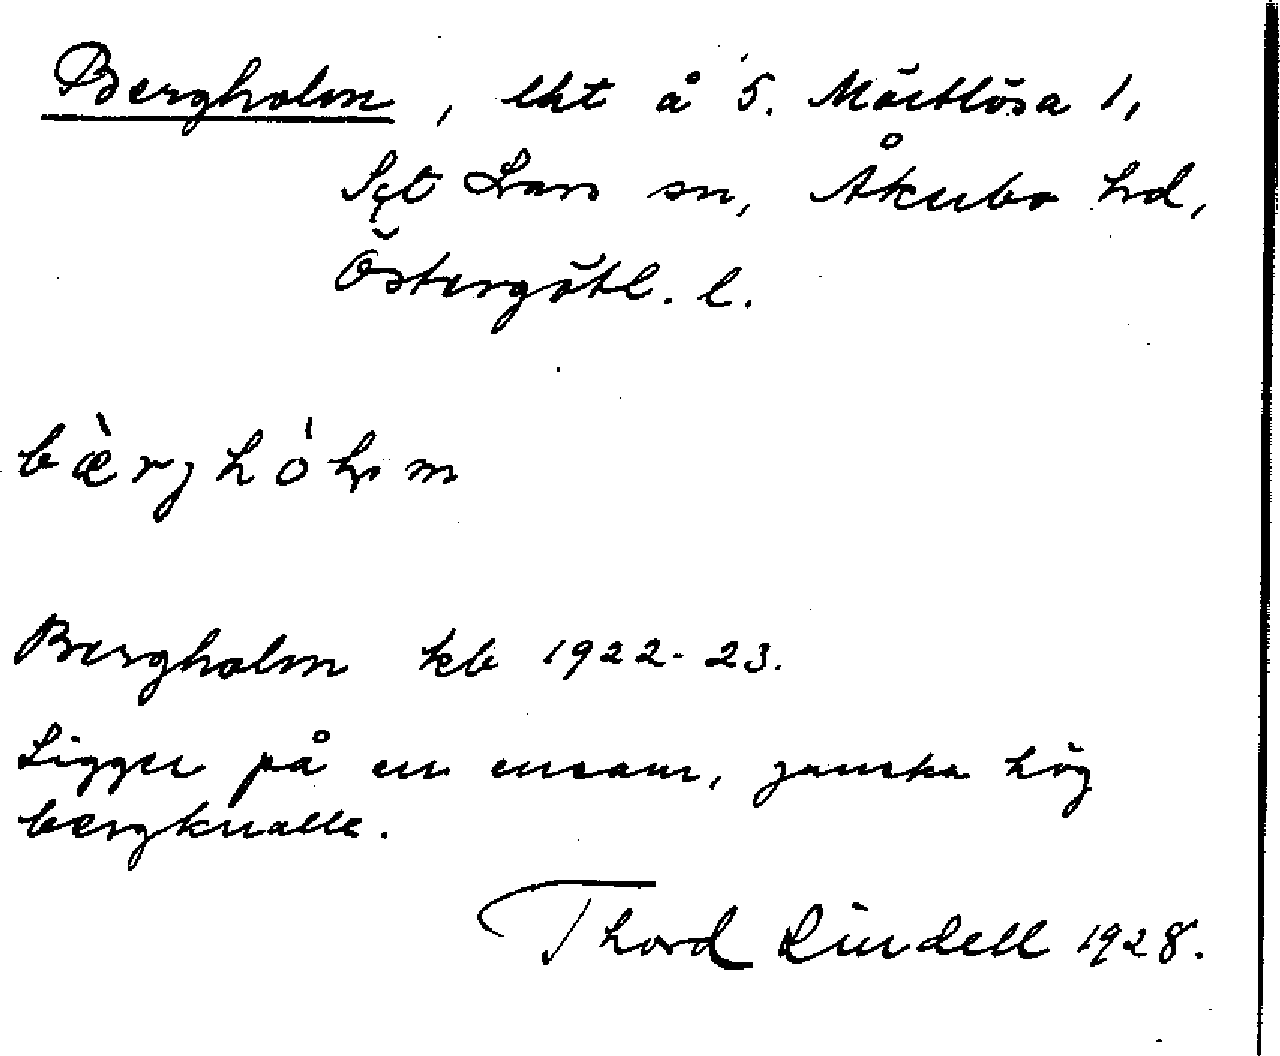 Bergholm, lht å S. Mörtlösa 1,
S:t Lars sn, Åkerbo hd,
Östergötl. l.
bæ̀rjhólm
Bergholm kb 1922-23.
Ligger på en ensam, ganska hög
bergknalle.
Thord Lindell 1928.